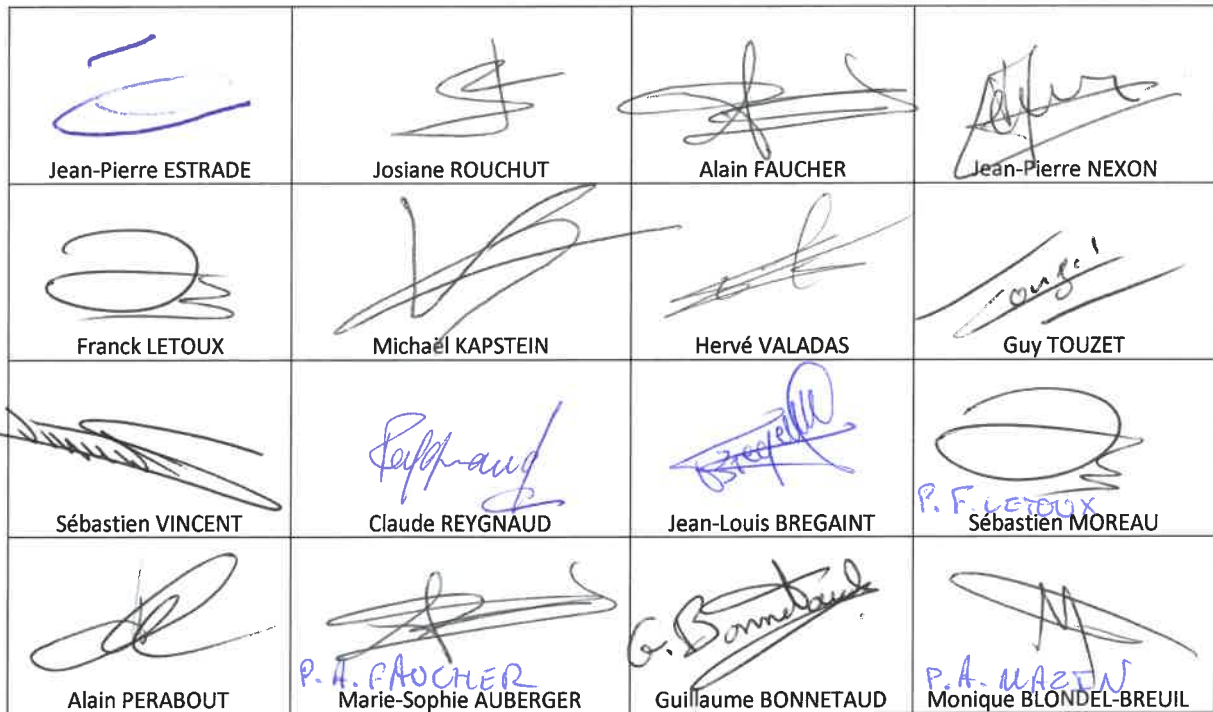 Jean-Pierre ESTRADE
Josiane ROUCHUT
Alain FAUCHER
Jean-Pierre NEXON
Franck LETOUX
Michaël KAPSTEIN
Hervé VALADAS
Touzet
Guy TOUZET
Sébastien VINCENT
Reygnaud
Claude REYGNAUD
Bregaint
Jean-Louis BREGAINT
P. F. LETOUX
Sébastien MOREAU
Alain PERABOUT
P. A. FAUCHER
Marie-Sophie AUBERGER
G. Bonnetaud
Guillaume BONNETAUD
P. A. MAZEN
Monique BLONDEL-BREUIL